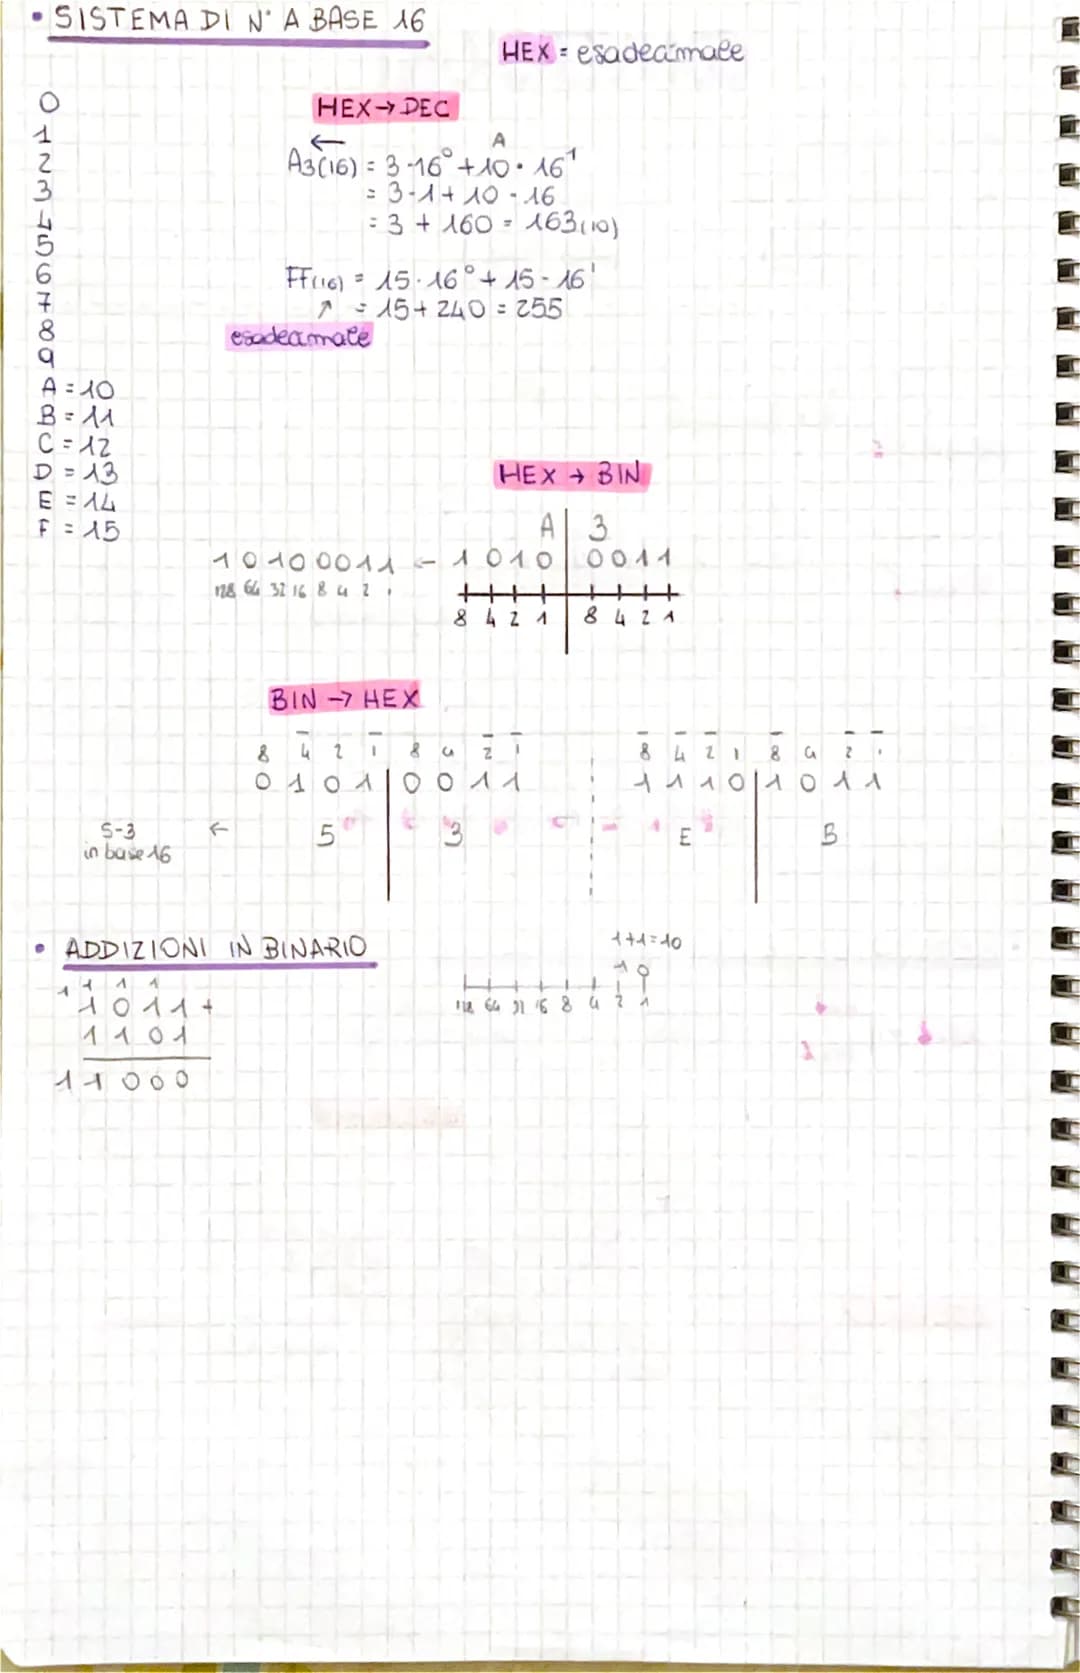 • SISTEMA DI N° A BASE 16
HEX = esadecimale
0
1
2
3
4
5
6
7
8
9
A = 10
B = 11
C = 12
D = 13
E = 14
F = 15
HEX → DEC
←
A
A3(16) = 3·16⁰ + 10 · 16¹
= 3·1 + 10 · 16
= 3 + 160 = 163(10)
FF(16) = 15·16⁰ + 15·16¹
↗ = 15 + 240 = 255
esadecimale
HEX → BIN
A | 3
10100011 ← 1010 | 0011
128 64 32 16 8 4 2 1
8 4 2 1 | 8 4 2 1
BIN → HEX
8 4 2 1 8 4 2 1
0 1 0 1 | 0 0 1 1
5 3
5-3 ←
in base 16
8 4 2 1 8 4 2 1
1 1 1 0 | 1 0 1 1
E B
• ADDIZIONI IN BINARIO
1 1 1 1
1 0 1 1 +
1 1 0 1
1 1 0 0 0
1+1=10
1 0
128 64 32 16 8 4 2 1